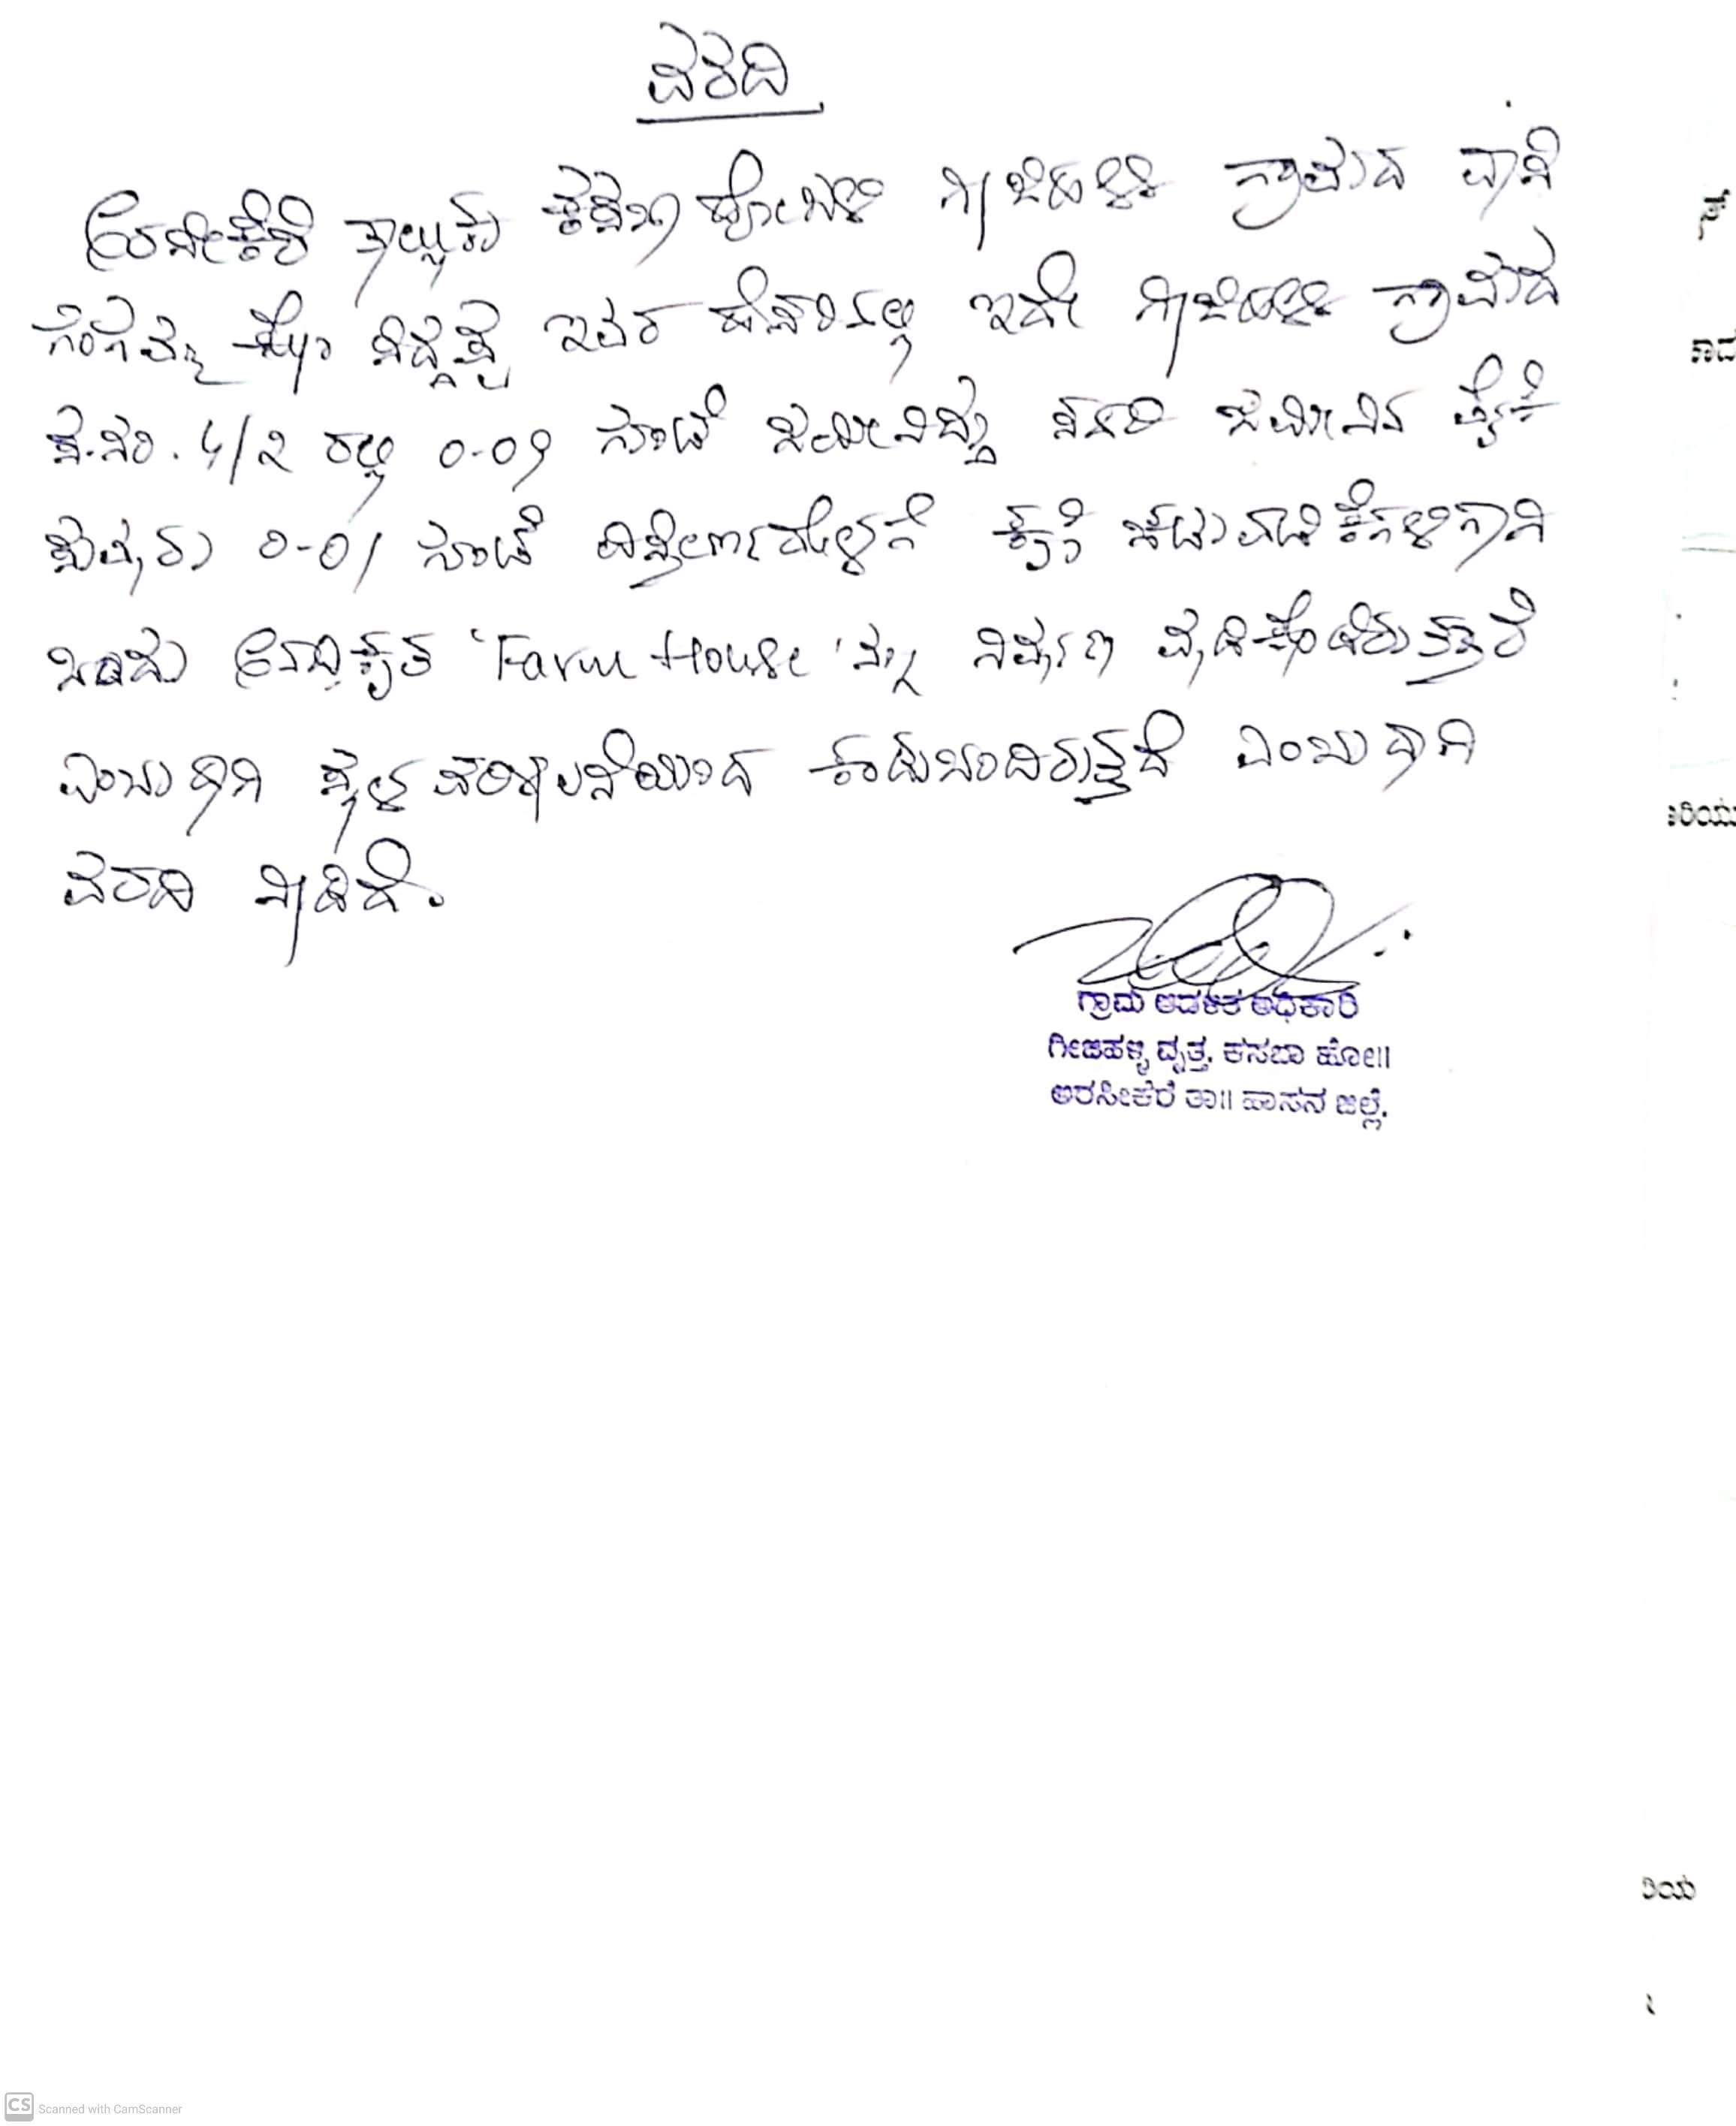 ವರದಿ
ಅರಸೀಕೆರೆ ತಾಲ್ಲೂಕು ಕಸಬಾ ಹೋಬಳಿ ಗೀಜಿಹಳ್ಳಿ ಗ್ರಾಮದ ವಾಸಿ
ಗಂಗಮ್ಮ ಕೋಂ ಸಿದ್ದಪ್ಪ ಇವರ ಹೆಸರಿನಲ್ಲಿ ಇದೇ ಗೀಜಿಹಳ್ಳಿ ಗ್ರಾಮದ
ಸ.ನಂ. 4/2 ರಲ್ಲಿ 0-09 ಗುಂಟೆ ಜಮೀನಿದ್ದು ಸದರಿ ಜಮೀನಿನ ಪೈಕಿ
ಸುಮಾರು 0-01 ಗುಂಟೆ ವಿಸ್ತೀರ್ಣದಲ್ಲಿ ಕೃಷಿ ಚಟುವಟಿಕೆಗಳಿಗಾಗಿ
ಒಂದು 'Farm House' ನ್ನು ನಿರ್ಮಾಣ ಮಾಡಿಕೊಂಡಿರುತ್ತಾರೆ
ಎಂಬುದಾಗಿ ಸ್ಥಳ ಪರಿಶೀಲನೆಯಿಂದ ಕಂಡುಬಂದಿರುತ್ತದೆ ಎಂಬುದಾಗಿ
ವರದಿ ನೀಡಿದೆ.
ಗ್ರಾಮ ಆಡಳಿತ ಅಧಿಕಾರಿ
ಗೀಜಿಹಳ್ಳಿ ವೃತ್ತ, ಕಸಬಾ ಹೋ||
ಅರಸೀಕೆರೆ ತಾ|| ಹಾಸನ ಜಿಲ್ಲೆ.
CS Scanned with CamScanner